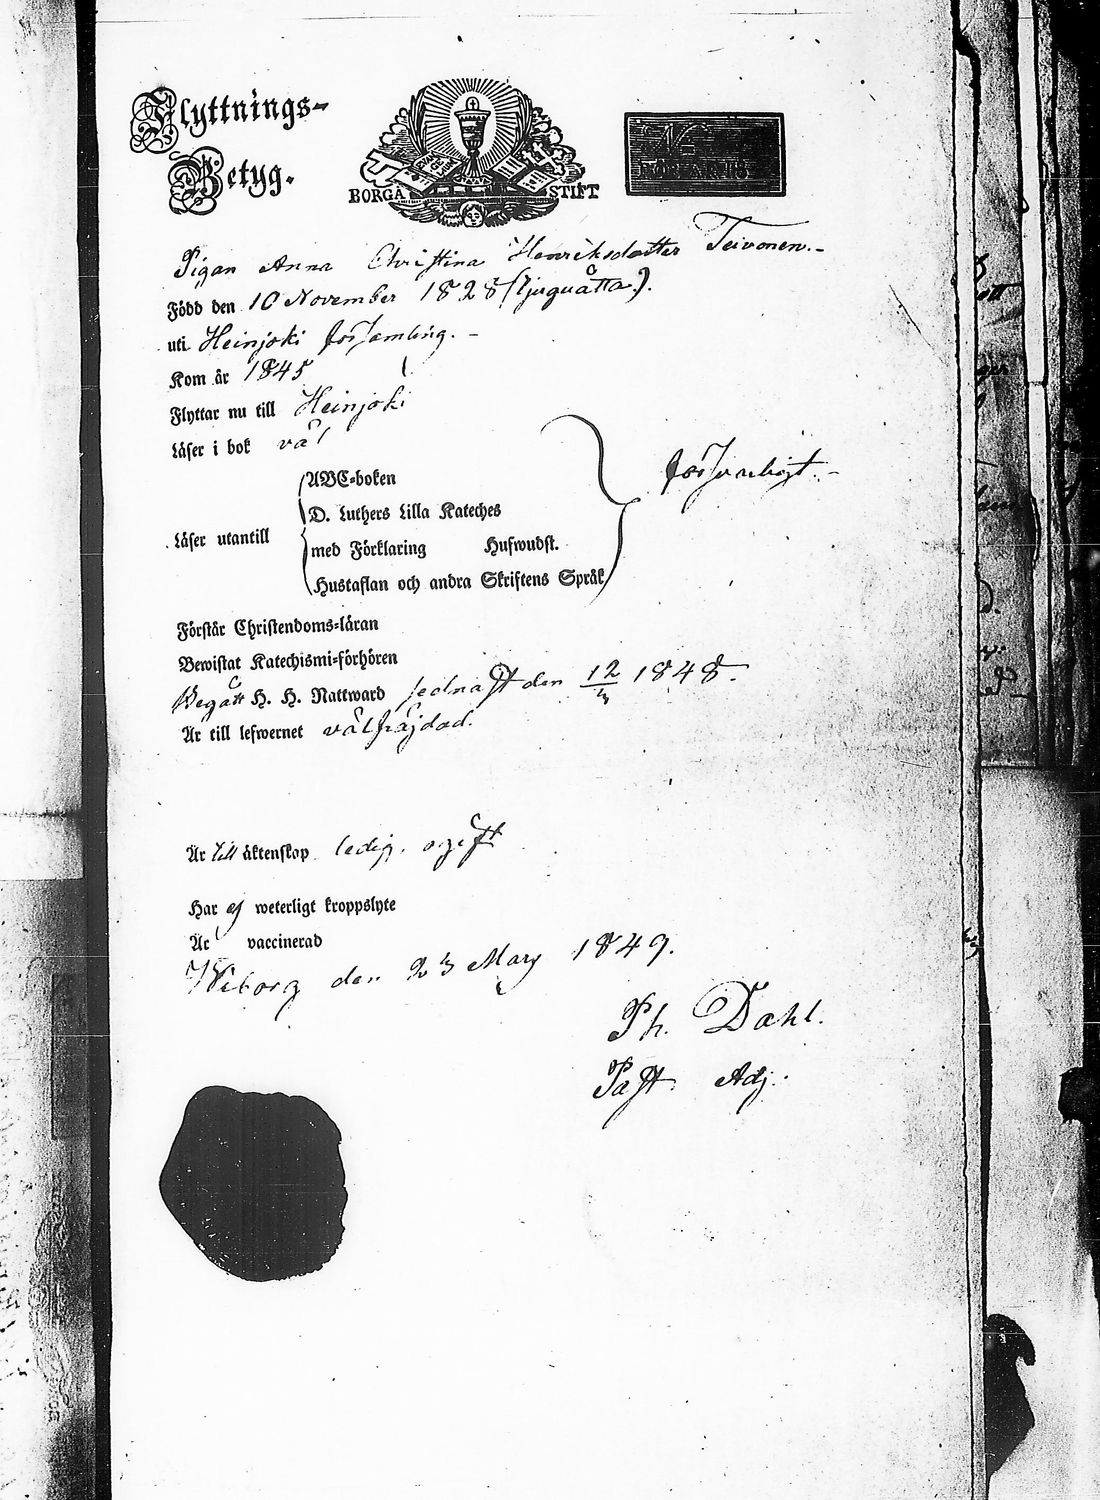 Flyttnings-
Betyg.
BORGÅ STIFT
Pigan Anna Christina Henriksdotter Teivonen.-
Född den 10 November 1828 (tjuguåtta).
uti Heinjoki församling. -
Kom år 1845
Flyttar nu till Heinjoki
Läser i bok väl
Läser utantill
ABC-boken
D. Luthers Lilla Kateches
med Förklaring Hufwudst.
Hustaflan och andra Skriftens Språk
försvarligt. -
Förstår Christendoms-läran
Bewistat Katechismi-förhören
Begått H. H. Nattward sednast den 12/3 1848.
Är till lefwernet välfräjdad.
Är till äktenskap ledig. ogift
Har ej weterligt kroppslyte
Är vaccinerad
Wiborg den 23 Mars 1849.
Ph. Dahl.
Past. Adj.